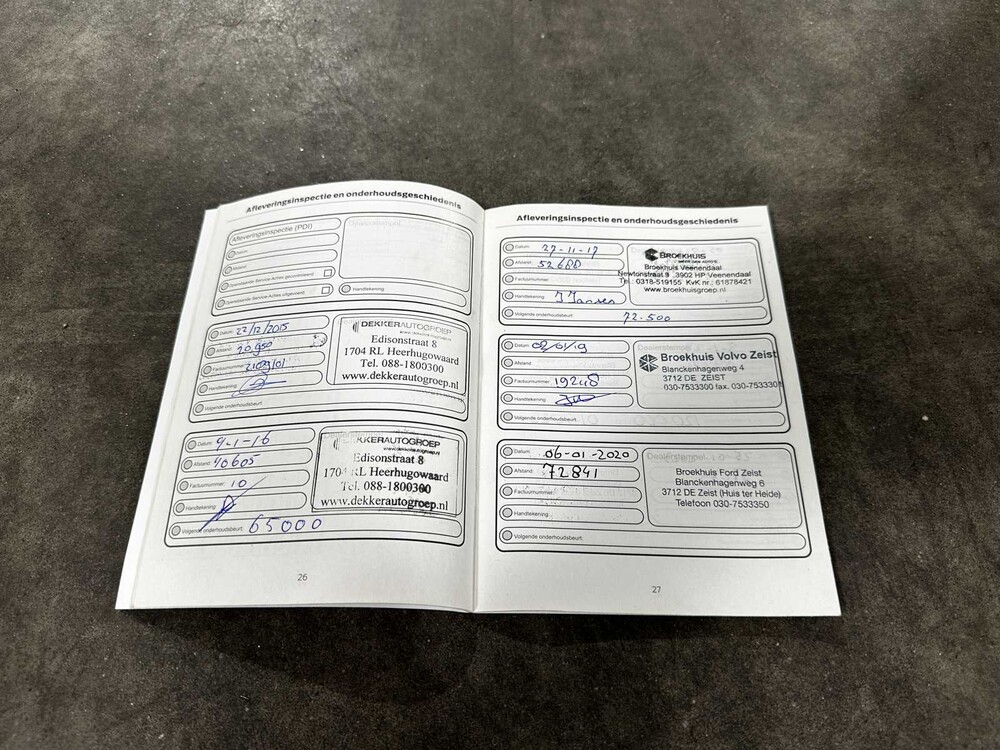 Afleveringsinspectie en onderhoudsgeschiedenis
Afleveringsinspectie (PDI)
Datum:
Afstand:
Openstaande Service-Acties gecontroleerd:
Openstaande Service-Acties uitgevoerd:
Handtekening:
Datum: 22/12/2015
Afstand: 20.950
Factuurnummer:
Handtekening:
Volgende onderhoudsbeurt:
DEKKERAUTOGROEP
www.dekkerautogroep.nl
Edisonstraat 8
1704 RL Heerhugowaard
Tel. 088-1800300
www.dekkerautogroep.nl
Datum: 9-1-16
Afstand: 40605
Factuurnummer: 10
Handtekening:
Volgende onderhoudsbeurt: 65000
DEKKERAUTOGROEP
www.dekkerautogroep.nl
Edisonstraat 8
1704 RL Heerhugowaard
Tel. 088-1800300
www.dekkerautogroep.nl
26
Afleveringsinspectie en onderhoudsgeschiedenis
Datum: 27-11-17
Afstand: 52680
Factuurnummer:
Handtekening: J Jansen
Volgende onderhoudsbeurt: 72.500
BROEKHUIS
Broekhuis Veenendaal
Newtonstraat 3 3902 HP Veenendaal
Tel.: 0318-519155 KvK nr.: 61878421
www.broekhuisgroep.nl
Datum: 02/01/19
Afstand:
Factuurnummer: 19248
Handtekening:
Volgende onderhoudsbeurt:
Dealerstempel:
Broekhuis Volvo Zeist
Blanckenhagenweg 4
3712 DE ZEIST
030-7533300 fax. 030-7533301
Datum: 06-01-2020
Afstand: 72841
Factuurnummer:
Handtekening:
Volgende onderhoudsbeurt:
Dealerstempel:
Broekhuis Ford Zeist
Blanckenhagenweg 6
3712 DE Zeist (Huis ter Heide)
Telefoon 030-7533350
27